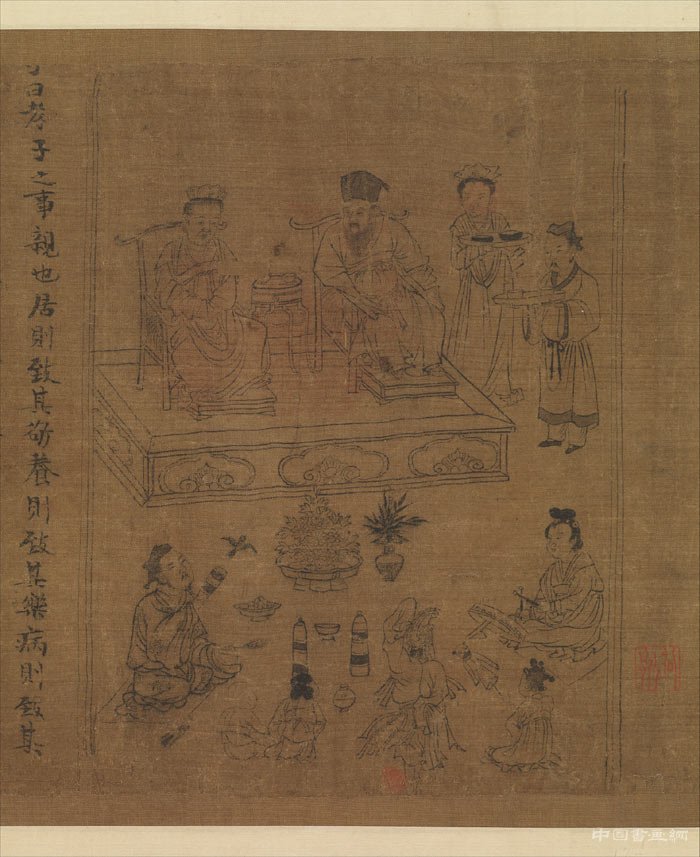 子曰孝子之事親也居則致其敬養則致其樂病則致其
中国書畫網